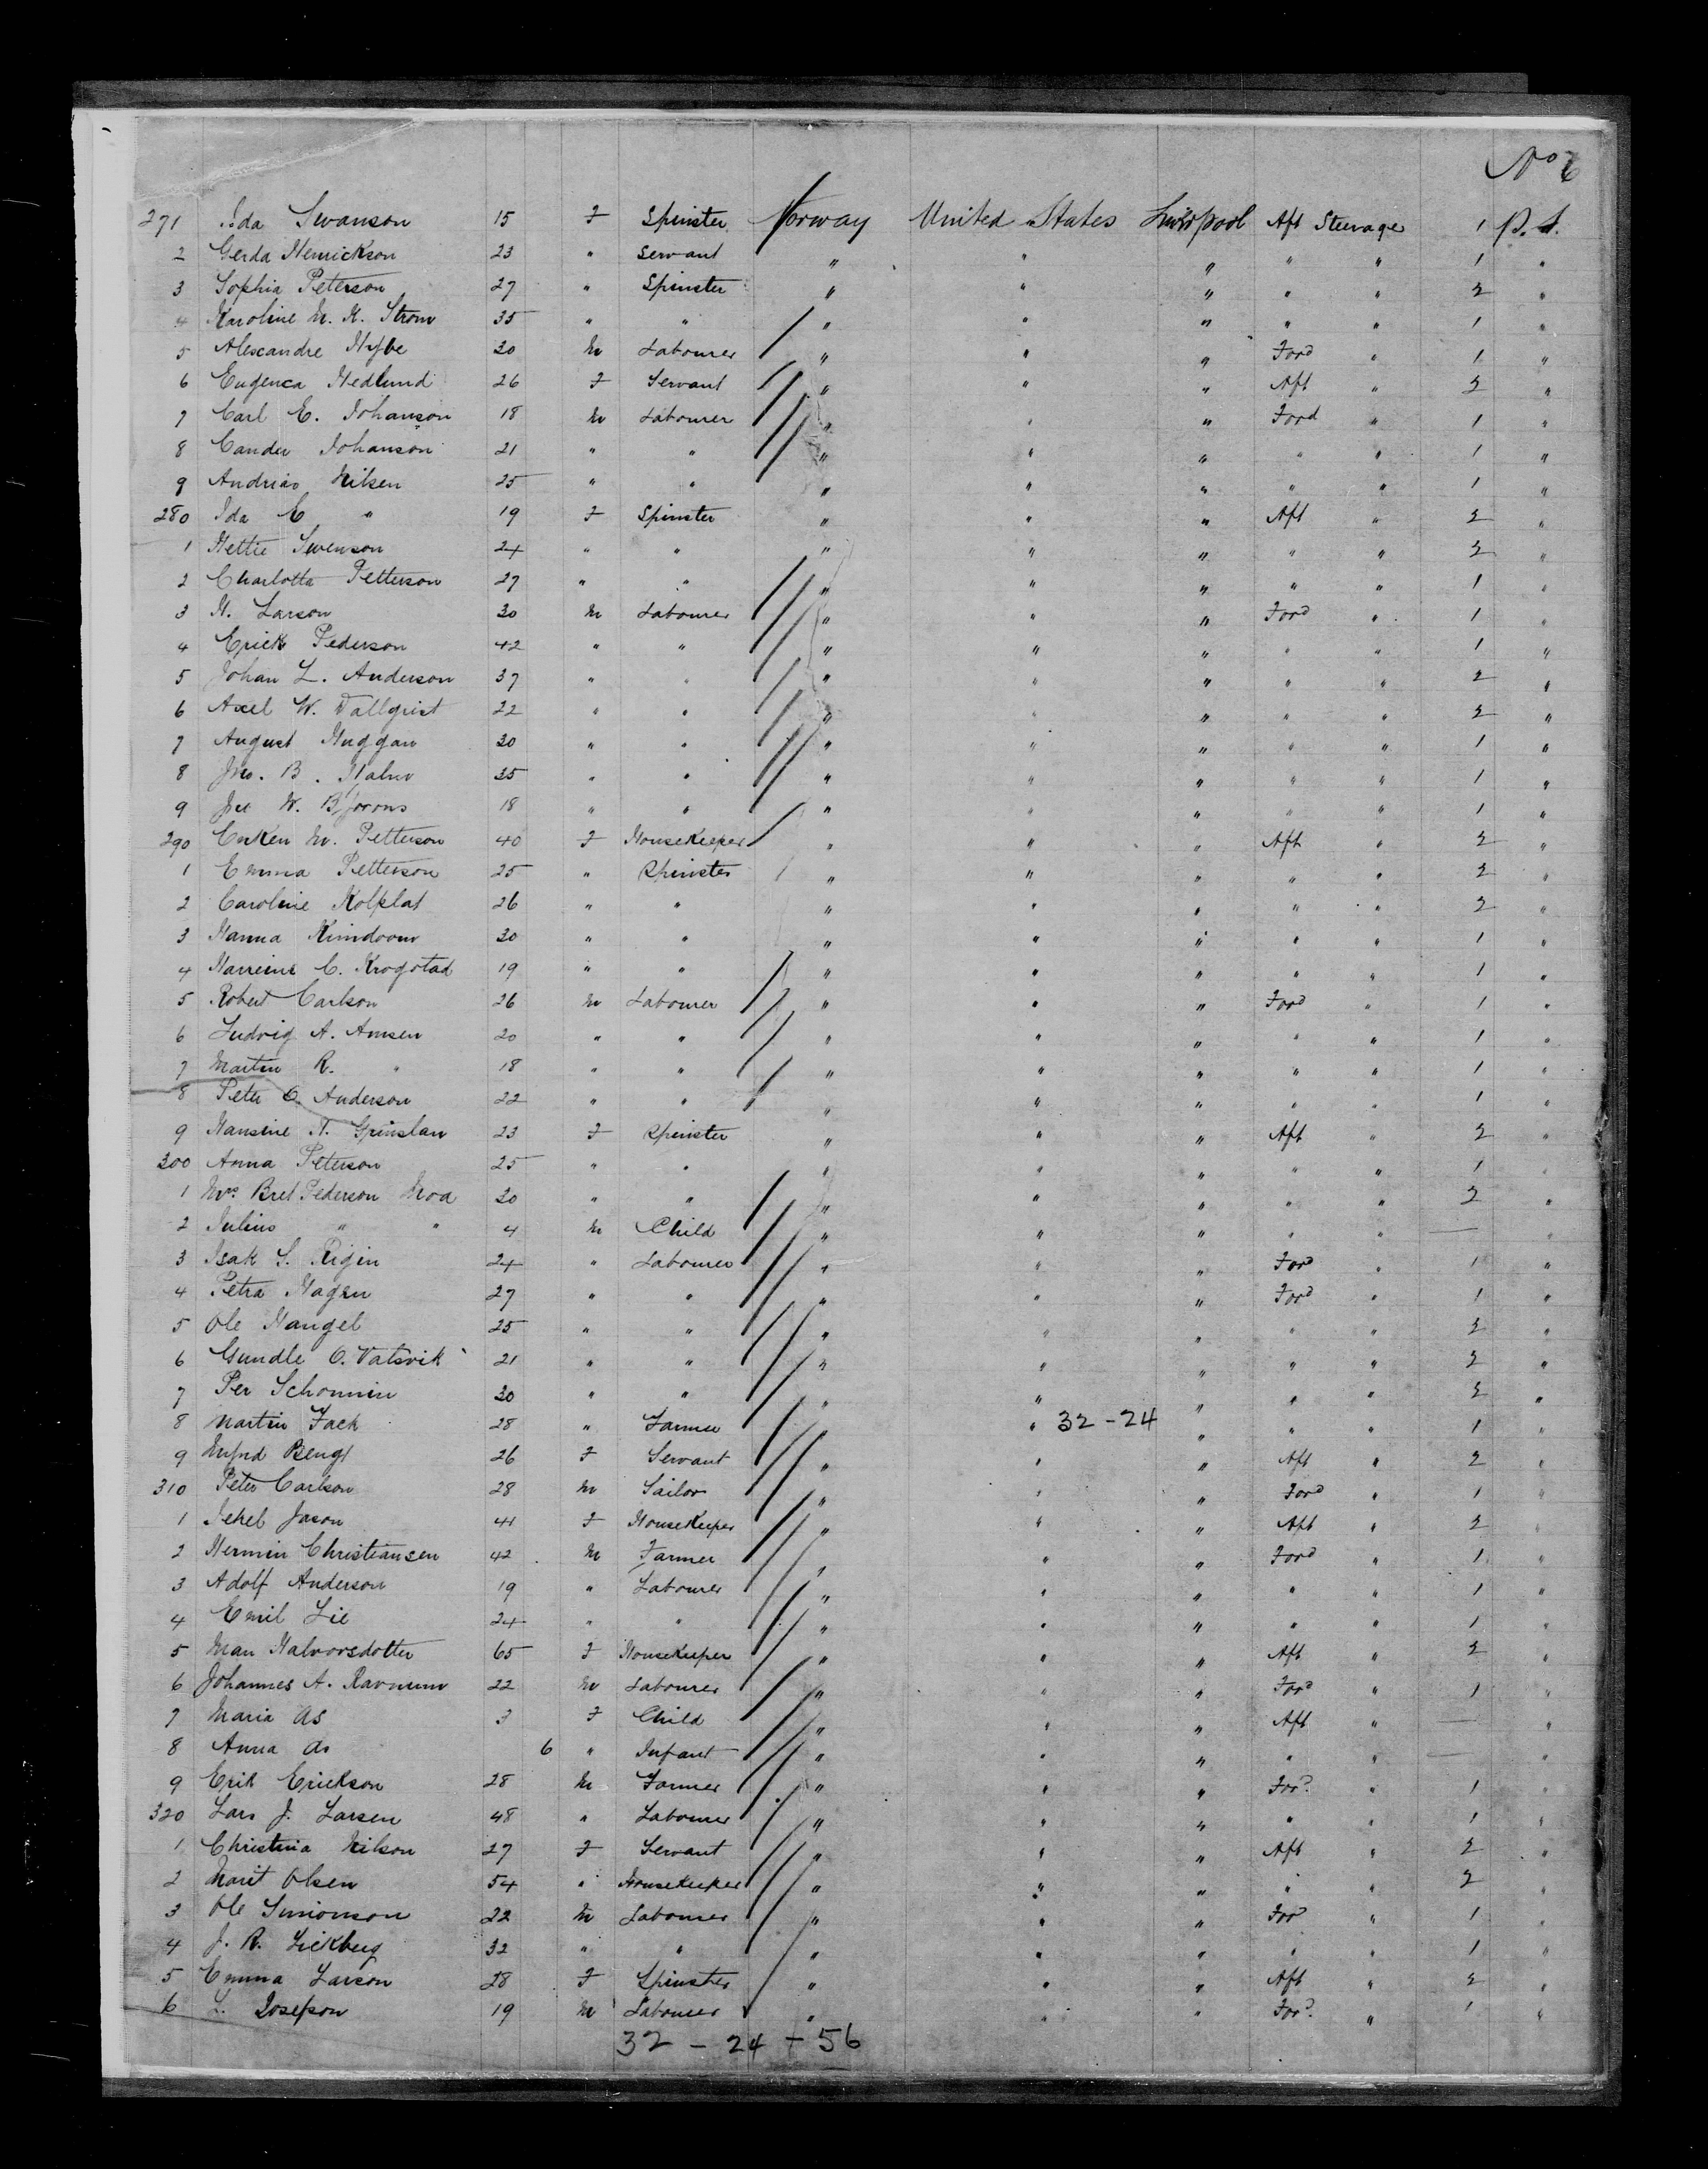 No 6
271 Ida Swanson 15 F Spinster Norway United States Liverpool Aft Steerage 1 P. S.
2 Gerda Henrickson 23 " Servant " " " " " 1 "
3 Sophia Peterson 27 " Spinster " " " " " 2 "
4 Karoline M. K. Strom 35 " " " " " " " 1 "
5 Alexandre Hybe 30 M Labourer " " " Ford " 1 "
6 Eugenea Hedlund 26 F Servant " " " Aft " 2 "
7 Carl E. Johanson 18 M Labourer " " " Ford " 1 "
8 Cander Johanson 21 " " " " " " " 1 "
9 Andrias Nilsen 25 " " " " " " " 1 "
280 Ida E " 19 F Spinster " " " Aft " 2 "
1 Hettie Swenson 24 " " " " " " " 2 "
2 Charlotta Petterson 27 " " " " " " " 1 "
3 H. Larson 30 M Labourer " " " Ford " 1 "
4 Erick Pederson 42 " " " " " " " 1 "
5 Johan L. Anderson 37 " " " " " " " 2 "
6 Axel W. Tallqvist 22 " " " " " " " 2 "
7 August Huggan 30 " " " " " " " 1 "
8 Jno. B. Halm 35 " " " " " " " 1 "
9 W. Bjorons 18 " " " " " " " 1 "
290 M. Petterson 40 F HouseKeeper " " " Aft " 2 "
1 Emma Petterson 25 " Spinster " " " " " 2 "
2 Caroline Kolplat 26 " " " " " " " 2 "
3 Hanna 30 " " " " " " " 1 "
4 C. Krogstad 19 " " " " " " " 1 "
5 Robert Carlson 26 M Labourer " " " Ford " 1 "
6 Ludvig A. Amsen 20 " " " " " " " 1 "
7 Martin R. " 18 " " " " " " " 1 "
8 Peter O. Anderson 22 " " " " " " " 1 "
9 Hansine N. Grinslan 23 F Spinster " " " Aft " 2 "
300 Anna Peterson 25 " " " " " " " 1 "
1 Mrs. Bret Pederson Moa 30 " " " " " " " 2 "
2 Julius " " 4 M Child " " " " " — "
3 Isak S. Rigin 24 " Labourer " " " Ford " 1 "
4 Petra Hagen 27 " " " " " Ford " 1 "
5 Ole Haugel 25 " " " " " " " 2 "
6 Gundle O. Vatsvik 21 " " " " " " " 2 "
7 Per Schonnin 30 " " " " " " " 2 "
8 Martin Fack 28 " Farmer " " 32-24 " " " 1 "
9 Bengt 26 F Servant " " " Aft " 2 "
310 Peter Carlson 28 M Sailor " " " Ford " 1 "
1 Jason 41 F HouseKeeper " " " Aft " 2 "
2 Hermin Christiansen 42 M Farmer " " " Ford " 1 "
3 Adolf Anderson 19 " Labourer " " " " " 1 "
4 Emil Lie 24 " " " " " " " 1 "
5 Mari Halvorsdotter 65 F HouseKeeper " " " Aft " 2 "
6 Johannes A. Ravnum 22 M Labourer " " " Ford " 1 "
7 Maria As 3 F Child " " " Aft " — "
8 Anna As 6 " Infant " " " " " — "
9 Erik Erickson 28 M Farmer " " " Ford " 1 "
320 Lars J. Larsen 48 " Labourer " " " " " 1 "
1 Christina Nilson 27 F Servant " " " Aft " 2 "
2 Marit Olsen 54 " HouseKeeper " " " " " 2 "
3 Ole Simonson 22 M Labourer " " " For " 1 "
4 J. R. Lickberg 32 " " " " " " " 1 "
5 Emma Larson 28 F Spinster " " " Aft " 2 "
6 L. Josepson 19 M Labourer " " " Ford " 1 "
32 - 24 - 56